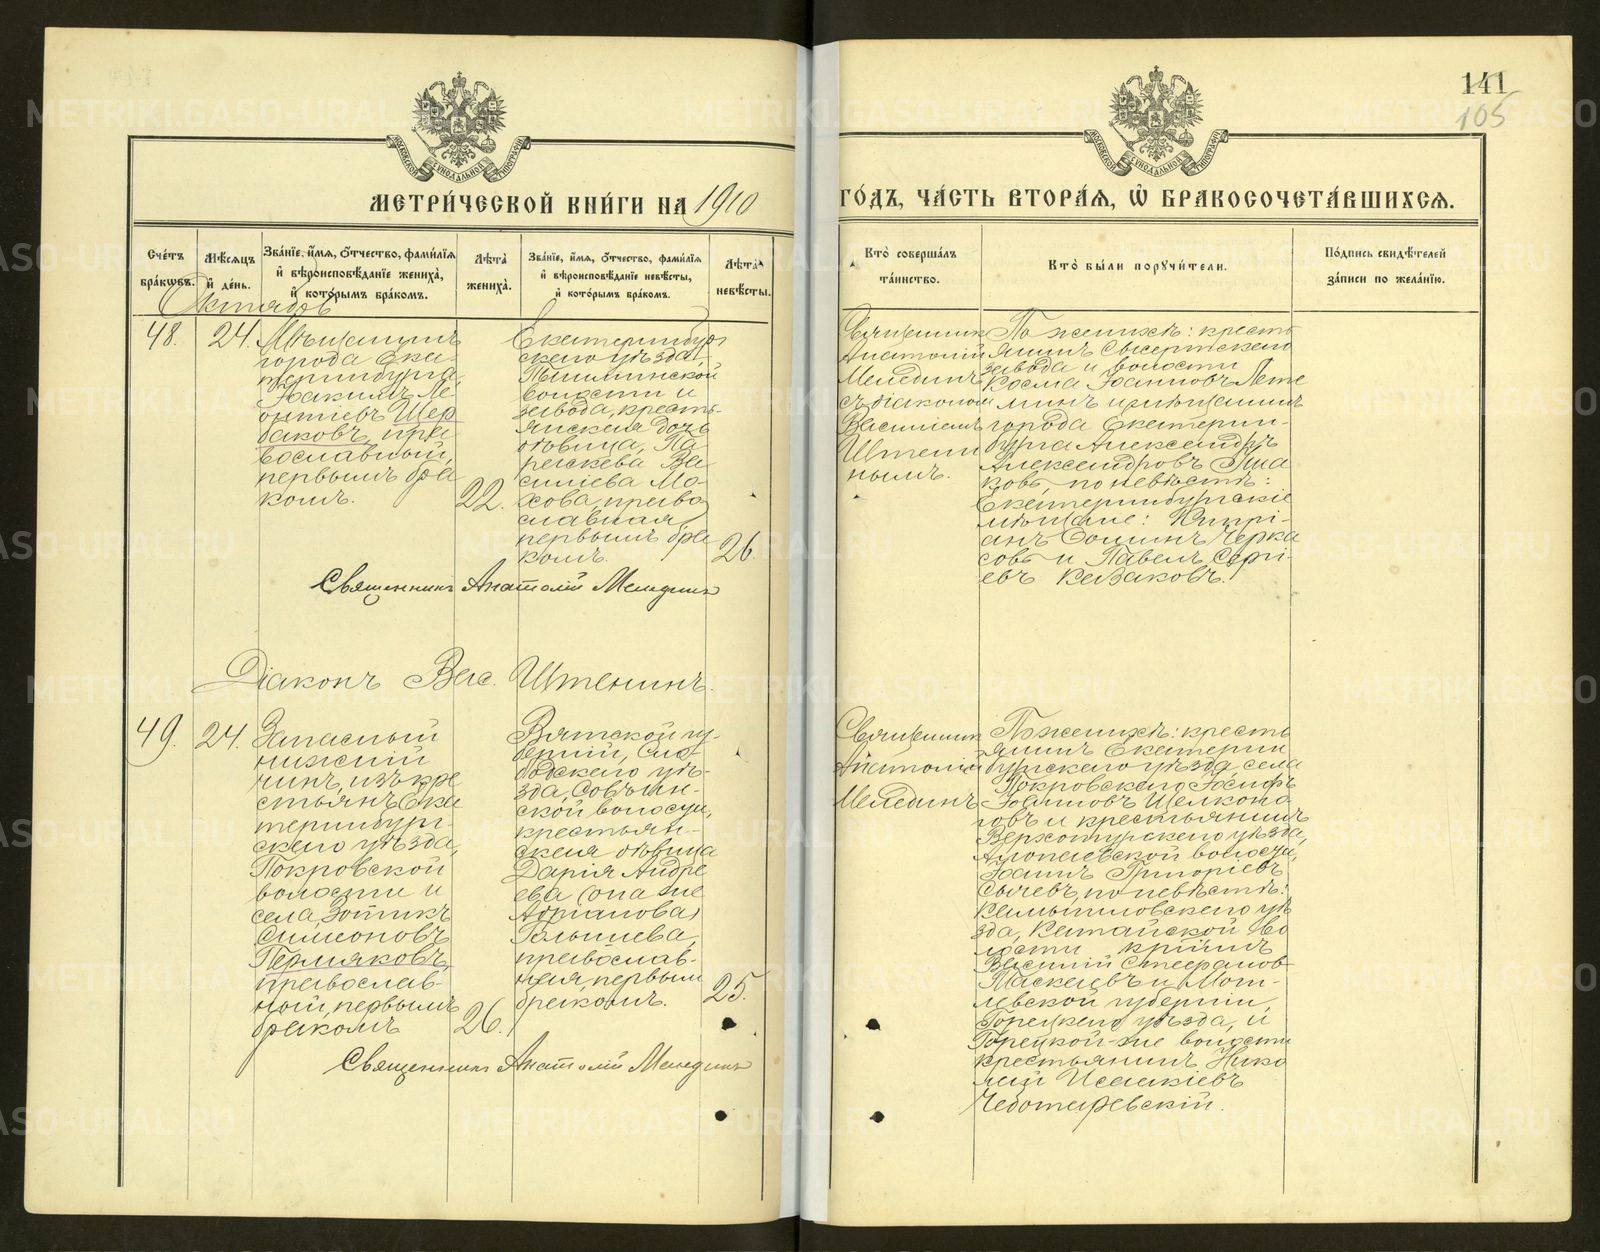 141
105
МОСКОВСКОЙ СѴНОДАЛЬНОЙ ТИПОГРАФІИ
МОСКОВСКОЙ СѴНОДАЛЬНОЙ ТИПОГРАФІИ
МЕТРИ́ЧЕСКОЙ КНИ́ГИ НА 1910 ГО́ДЪ, ЧА́СТЬ ВТОРА́Я, Ѽ БРАКОСОЧЕТА́ВШИХСЯ.
Сче́тъ
бра́кѡвъ.
Мѣ́сяцъ
и҆ де́нь.
Зва́нїе, и҆́мя, ѻ҆́тчество, фами́лїя
и҆ вѣроисповѣ́данїе жениха̀,
и҆ кото́рымъ бра́комъ.
Лѣ́та
жениха̀.
Зва́нїе, и҆́мя, ѻ҆́тчество, фами́лїя
и҆ вѣроисповѣ́данїе невѣ́сты,
и҆ кото́рымъ бра́комъ.
Лѣ́та
невѣ́сты.
Кто̀ соверша́лъ
та́инство.
Кто̀ бы́ли поручи́тели.
По́дпись свидѣ́телей
за́писи по жела́нїю.
Октябрь
48.
24.
Мѣщанинъ
города Ека-
теринбурга,
Іоакимъ Ле-
онтіевъ Щер
баковъ, пра
вославный,
первымъ бра
комъ.
22.
Екатеринбур
скаго уѣзда,
Пышминской
волости и
завода, кресть-
янская дочь
дѣвица, Па-
раскева Ва
силіева Мо-
хова, право
славная,
первымъ бра
комъ.
26.
Священникъ
Анатолій
Мелединъ
съ діакономъ
Василіемъ
Штени
нымъ.
По женихѣ: кресть
янинъ Сысертскаго
завода и волости
Косма Іоанновъ Лете
минъ и мѣщанинъ
города Екатерин-
бурга Александръ
Александровъ
ковъ, по невѣстѣ:
Екатеринбургскіе
мѣщане: Кипрі-
анъ Ѳоминъ Черка
совъ и Павелъ Сергі-
евъ Казаковъ.
Священникъ Анатолій Мелединъ
Діаконъ Вас. Штенинъ.
49.
24.
Запасный
нижній
чинъ, изъ кре
стьянъ Ека
теринбург-
скаго уѣзда,
Покровской
волости и
села, Зотикъ
Симеоновъ
Пермяковъ,
православ-
ный, первымъ
бракомъ
26.
Вятской гу-
берніи, Сло-
бодскаго уѣ-
зда, Совьин-
ской волости,
крестьян-
ская дѣвица
Дарія Андре
ева (она же
Адріанова)
Голышева,
православ-
ная, первым
бракомъ.
25.
Священник
Анатолій
Мелединъ
По женихѣ: кресть
янинъ Екатерин
бургскаго уѣзда, села
Покровскаго Іосифъ
Іоанновъ Щелконо
говъ и крестьянинъ
Верхотурскаго уѣзда,
Алопаевской волости,
Іоаннъ Григоріевъ
Сычевъ, по невѣстѣ:
Камышловскаго уѣ
зда, Катайской во
лости кр-нинъ
Василій Стефанов
и Моги-
левской губерніи,
Горецкаго уѣзда, и
Горецкой-же волости
крестьянинъ Нико
лай Исаакіевъ
Чеботаревскій.
Священникъ Анатолій Мелединъ